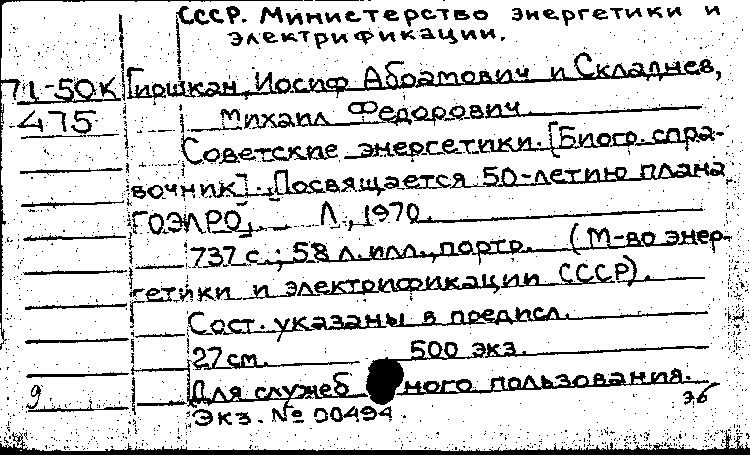 СССР. Министерство энергетики и
электрификации.
71-50К Гиршкан, Иосиф Абрамович и Складнев,
475 Михаил Федорович
Советские энергетики. [Биогр. спра-
вочник]. [Посвящается 50-летию плана
ГОЭЛРО]. Л., 1970.
737 с.; 58 л. илл., портр. (М-во энер-
гетики и электрификации СССР).
Сост. указаны в предисл.
27 см. 500 экз.
9 Для служебного пользования.
Экз. № 00494.
эб